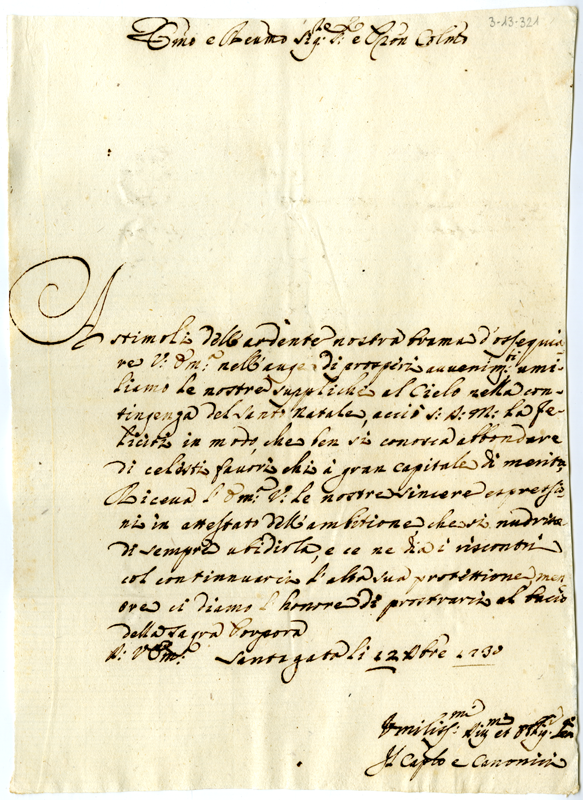 3-13-321
Emo e Reumo Sig:re P:re e Pron Colmo
A stimoli dell'ardente nostra brama d'ossequia
re V: Em:a nell'auge di prosperi auuenim:ti umi-
liamo le nostre suppliche al Cielo nella con-
tingenza del Santo Natale, acciò S: D: M: la fe-
liciti in modo, che ben si conosca abbondare
di celesti fauori chi à gran capitale di merito
Riceua l'Em:a V: le nostre sincere espressio
ni in attestato dell'ambitione che si nudrita
di sempre ubidirla, e ce ne dia i riscontri
col continnuarci l'alta sua protittione, men
tre ci diamo l'honore di prostrarci al bacio
della Sagra Porpora
D: V: Em:a Santagata li 12 Xbre 1730
Vmiliss:mi Diu:mi et Obbg:
Il Caplo e Canonici